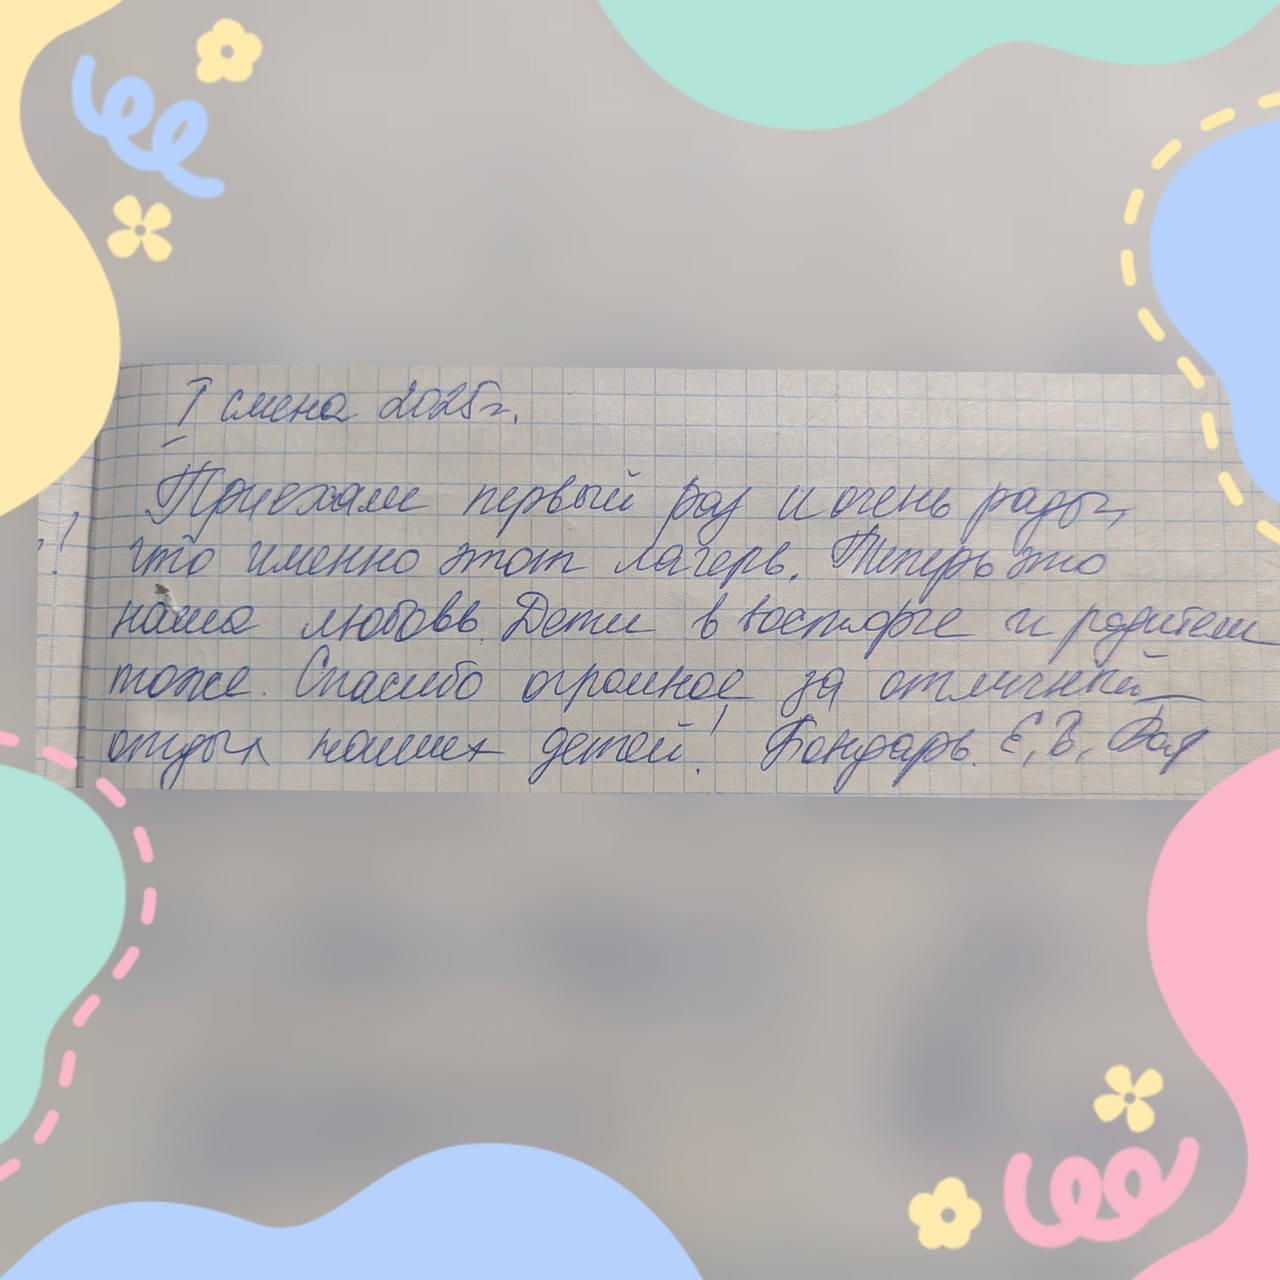 I смена 2025г.
Приехали первый раз и очень рады,
что именно этот лагерь. Теперь это
наша любовь. Дети в восторге и родители
тоже. Спасибо огромное за отличный
отдых наших детей! Бондарь Е.В.